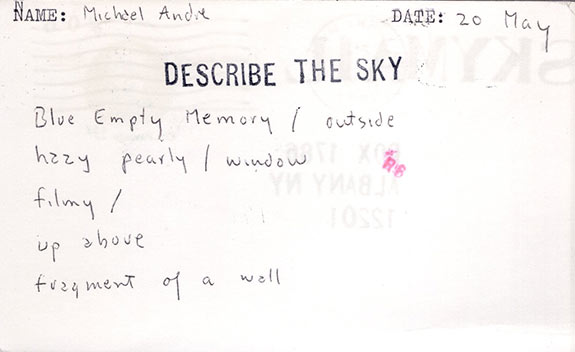 NAME: Michael Andre DATE: 20 May
DESCRIBE THE SKY
Blue Empty Memory / outside
hazy pearly / window
filmy /
up above
fragment of a wall
SKY
BOX 1786
ALBANY NY
12201